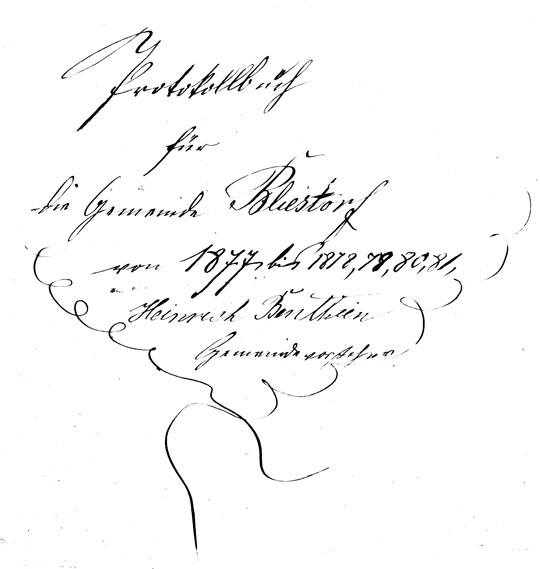 Protokollbuch
für
die Gemeinde Bliestorf
von 1877 bis 1878, 79, 80, 81,
Heinrich Benthien
Gemeindevorsteher